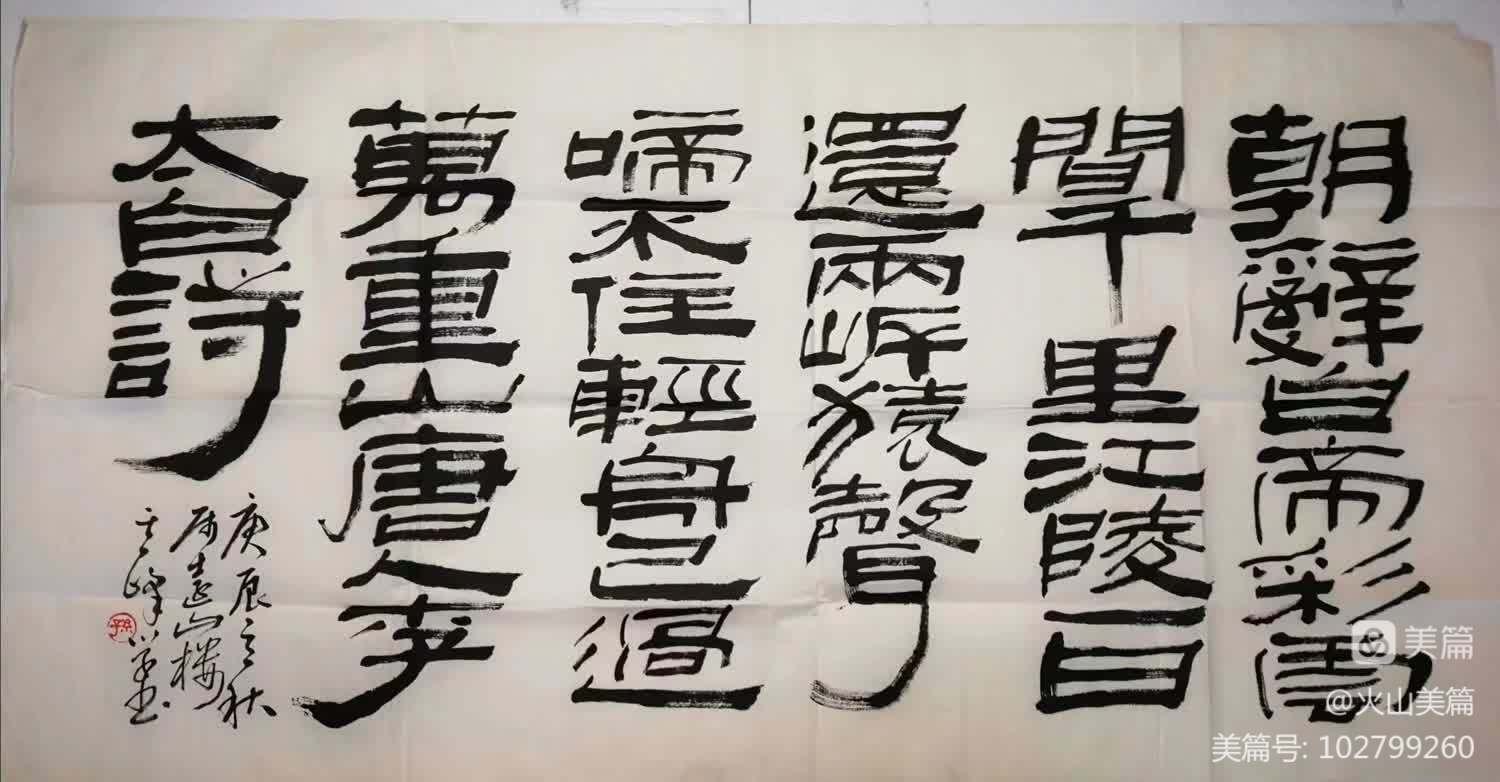 朝辭白帝彩雲
間千里江陵一日
還兩岸猿聲
啼不住輕舟已過
萬重山唐人李
太白詩
庚辰之秋
遠山樓
其峰
孫
美篇
@火山美篇
美篇号: 102799260